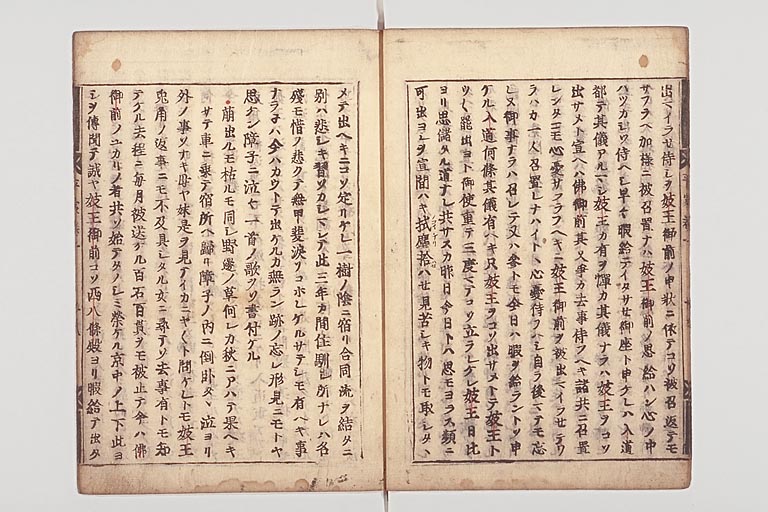 出マイラせ侍しヲ妓王御前ノ申状ニ依テコソ被召返テモ
サフラヘ加様ニ被召置ナハ妓王御前ノ思給ハン心ノ中
ハツカシウ侍ヘシ早々暇給テイタサせ御座ト申ケレハ入道
都テ其儀アルマシ妓王カ有ヲ憚カ其儀ナラハ妓王ヲコソ
出サメト宣ヘハ佛御前其又争カ去事侍フヘキ諸共ニ召置
レンタニモ心憂サフラフヘキニ妓王御前ヲ被出マイラせテワ
ラハカ一人召置レナハイトヽ心憂侍フヘシ自ラ後マテモ忘
レヌ御事ナラハ召レテ又ハ参トモ今日ハ暇ヲ給ラントソ申
ケル入道何條其儀有ヘキ只妓王ヲコソ出サメトテ妓王ト
ツク罷出ヨト御使重テ三度マテコソ立ラレケレ妓王日比
ヨリ思儲タル道ナレ共サスカ昨日今日トハ思モヨラス頻ニ
可出ヨシヲ宣間拭塵拾ハせ見苦シキ物トモ取シタヽ
メテ出ヘキニコソ定リケレ一樹ノ陰ニ宿リ合同流ヲ結タニ
別ハ悲シキ習ソカシマシテ此三年カ間住馴シ所ナレハ名
殘モ惜ノ悲クテ無甲斐涙ソコホレケルサテシモ有ヘキ事
ナラネハ今ハカウトテ出ケルカ無ラン跡ノ忘レ形見ニモトヤ
思ケン障子ニ泣々一首ノ歌ヲソ書付ケル
萠出ルモ枯ルモ同シ野邊ノ草何レカ秋ニアハテ果ヘキ
サテ車ニ乗テ宿所ヘ歸リ障子ノ内ニ倒卧タヽ泣ヨリ
外ノ事ソナキ母ヤ妹是ヲ見テイカニヤ〱ト問ケレトモ妓王
兎角ノ返事ニモ不及具シタル女ニ尋テソ去事有トモ知
テケル去程ニ毎月被送ケル百石百貫ヲモ被止テ今ハ佛
御前ノユカリノ者共ソ始テタノシミ榮ケル京中ノ上下此ヨ
シヲ傳聞テ誠ヤ妓王御前コソ西八條殿ヨリ暇給テ出タ